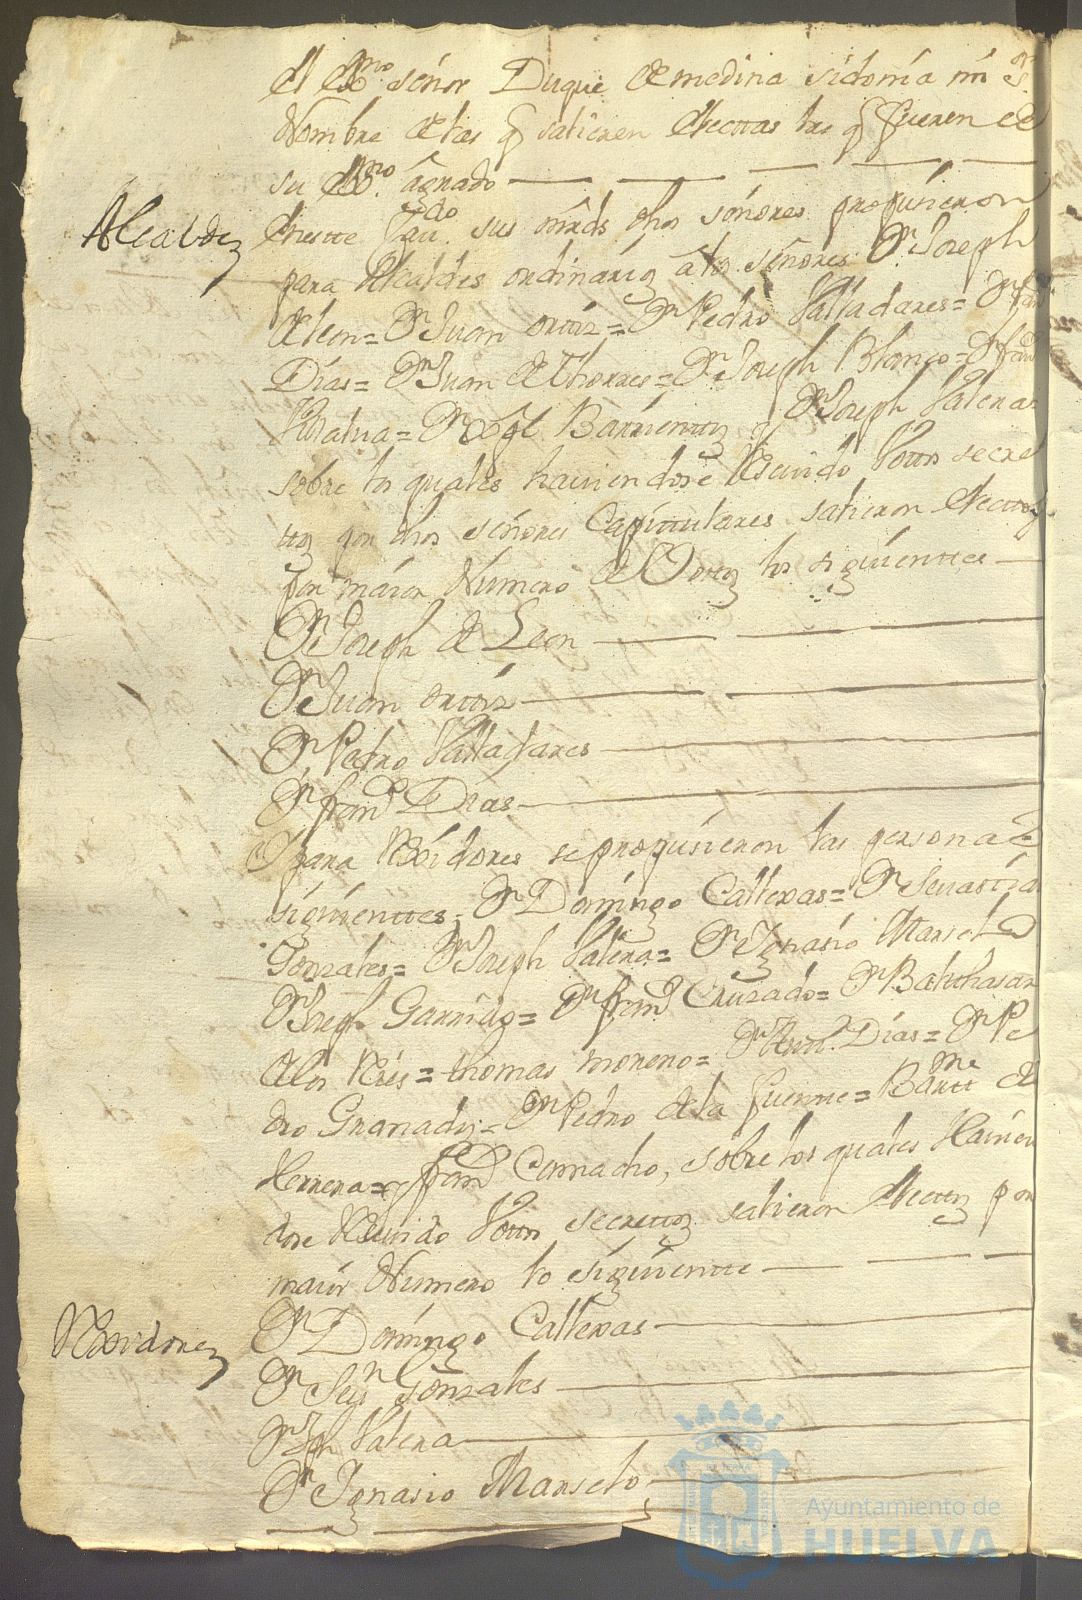 el Exmo. señor Duque de medina sidonia mi Sr.
Nombre de las q salieren electtas las q fueren de
su Exmo. agrado
Alcaldes
En estte Cavdo. sus mrds dhos señores propusieron
para Alcaldes ordinarios a los señores Dn Joseph
de leon = Dn Juan ortiz = Dn Pedro Valladares = Dn franco
Dias = Dn Juan de thorres = Dn Joseph Blanco = Dn franco
Barrientos y Dn Joseph Valera =
sobre los quales haviendose Resevido Votos secre
ttos por dhos señores Capittulares salieron electtos
por maior Numero de Votos los siguienttes
Dn Joseph de Leon
Dn Juan orttiz
Dn Pedro Valladares
Dn franco Dias
Y para Rexidores se propusieron las personas
siguienttes = Dn Domingo Callexas = Dn Sevastian
Gonzales = Dn Joseph Valera = Dn Ignasio Marselo
Dn Joseph Garrido = Dn franco Cruzado = Dn Balthasar
de los Reies = thomas moreno = Dn Antto. Dias = Dn Pe
dro Granados = Dn Pedro de la fuente = Bartme de
Herrera = y franco Camacho, sobre los quales Havien
dose Resevido Vottos secrettos salieron electtos por
maior Numero lo siguientte
Rexidores
Dn Domingo Callexas
Dn Sevn Gonzales
Dn Jph Valera
Dn Ignasio Marselo
Ayuntamiento de
HUELVA